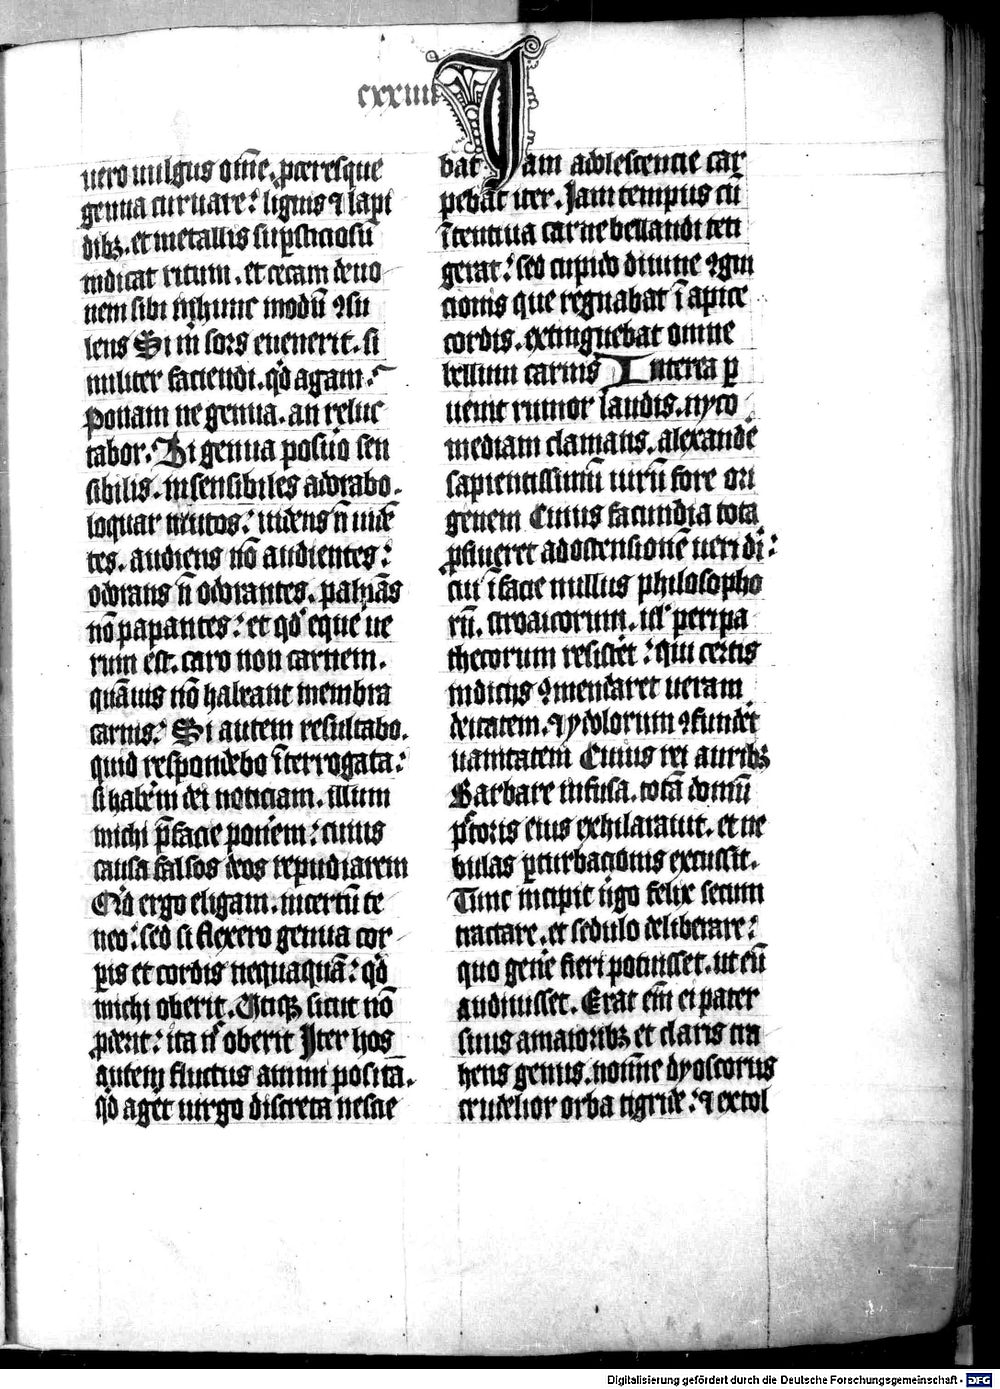 cxxiiii
uero uulgus om̅e. ꝓceresque
genua curuare: lignis ⁊ lapi
dibꝫ. et metallis suꝑsticiosu̅
iudicat ritum. et cecam deuo
nem sibi
lens Si in sors euenerit. si
militer faciendi. qd̛ agam.
Ponam ne genua. an reluc
tabor. Si genua posuo sen
sibilis. insensibiles adorabo.
loquar mutos: uidens n̅ uide̅
tes. audiens no̅ audientes:
odorans n̅ odorantes. palpa̅s
no̅ papantes: et qd̛ eque ue
rum est. caro non carnem.
qua̅uis no̅ habeant membra
carnis: Si autem resultabo.
quid respondebo i̅terrogata:
si habem̅ dei noticiam. illum
michi p̅ facie ponem̅: cuius
causa falsos deos repudiarem
Qd̛ ergo eligam. incertu̅ te
neo: sed si flexero genua cor
ꝑis et cordis nequaqua̅: qd̛
michi oberit. Utiqꝫ sicut no̅
ꝓderit: ita n̅ oberit Iter hos
autem fluctus animi posita̅.
qd̛ aget uirgo discreta nescie
bat Jam adolescencie car
peba̅t iter. Jam tempus cu̅
i̅tentiua carne bellandi teti
gerat: sed cupido diuine ꝯgni
cionis que regnabat i̅ apice
cordis. extinguebat omne
bellum carnis Interea ꝑ
uenit rumor laudis. nyco
mediam clamans. alexande̅
sapientissimu̅ uiru̅ fore ori
genem Cuius facundia tota
ꝓflueret ad ostensione̅ ueri di̅:
cui i̅ facie nullus philosopho
ru̅. stoaicorum. ꝑeripa
theticorum resistet: qui certis
indicijs ꝯmendaret ueram
deitatem. ⁊ ydolorum ꝯfundet
uanitatem Cuius rei auribꝫ
Barbare infusa. tota̅ domu̅
pectoris eius exhilarauit. et ne
bulas ꝑturbacionis excussit.
Tunc incipit u̅go felix secum
tractare. et sedulo deliberare:
quo gene̅ fieri potuisset. ut eu̅
audiuisset. Erat em̅ ei pater
suus a maioribꝫ et claris tra
hens genus. nomi̅ne dyoscorus
crudelior orba tigride: ⁊ extol